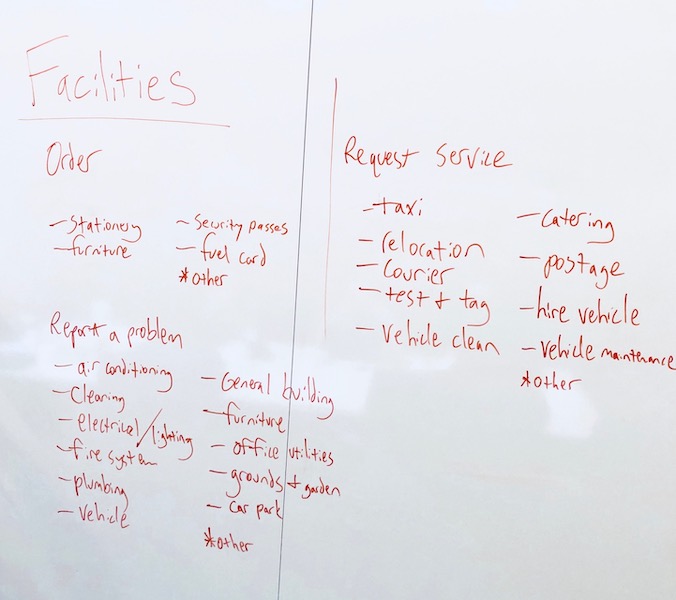 Facilities
Order
- Stationery
- furniture
- Security passes
- fuel card
* other
Report a problem
- air conditioning
- Cleaning
- electrical/lighting
- fire system
- plumbing
- Vehicle
- General building
- furniture
- office utilities
- grounds + garden
- Car park
* other
Request Service
- taxi
- relocation
- Courier
- test + tag
- Vehicle clean
- Catering
- postage
- hire vehicle
- Vehicle maintenance
* other